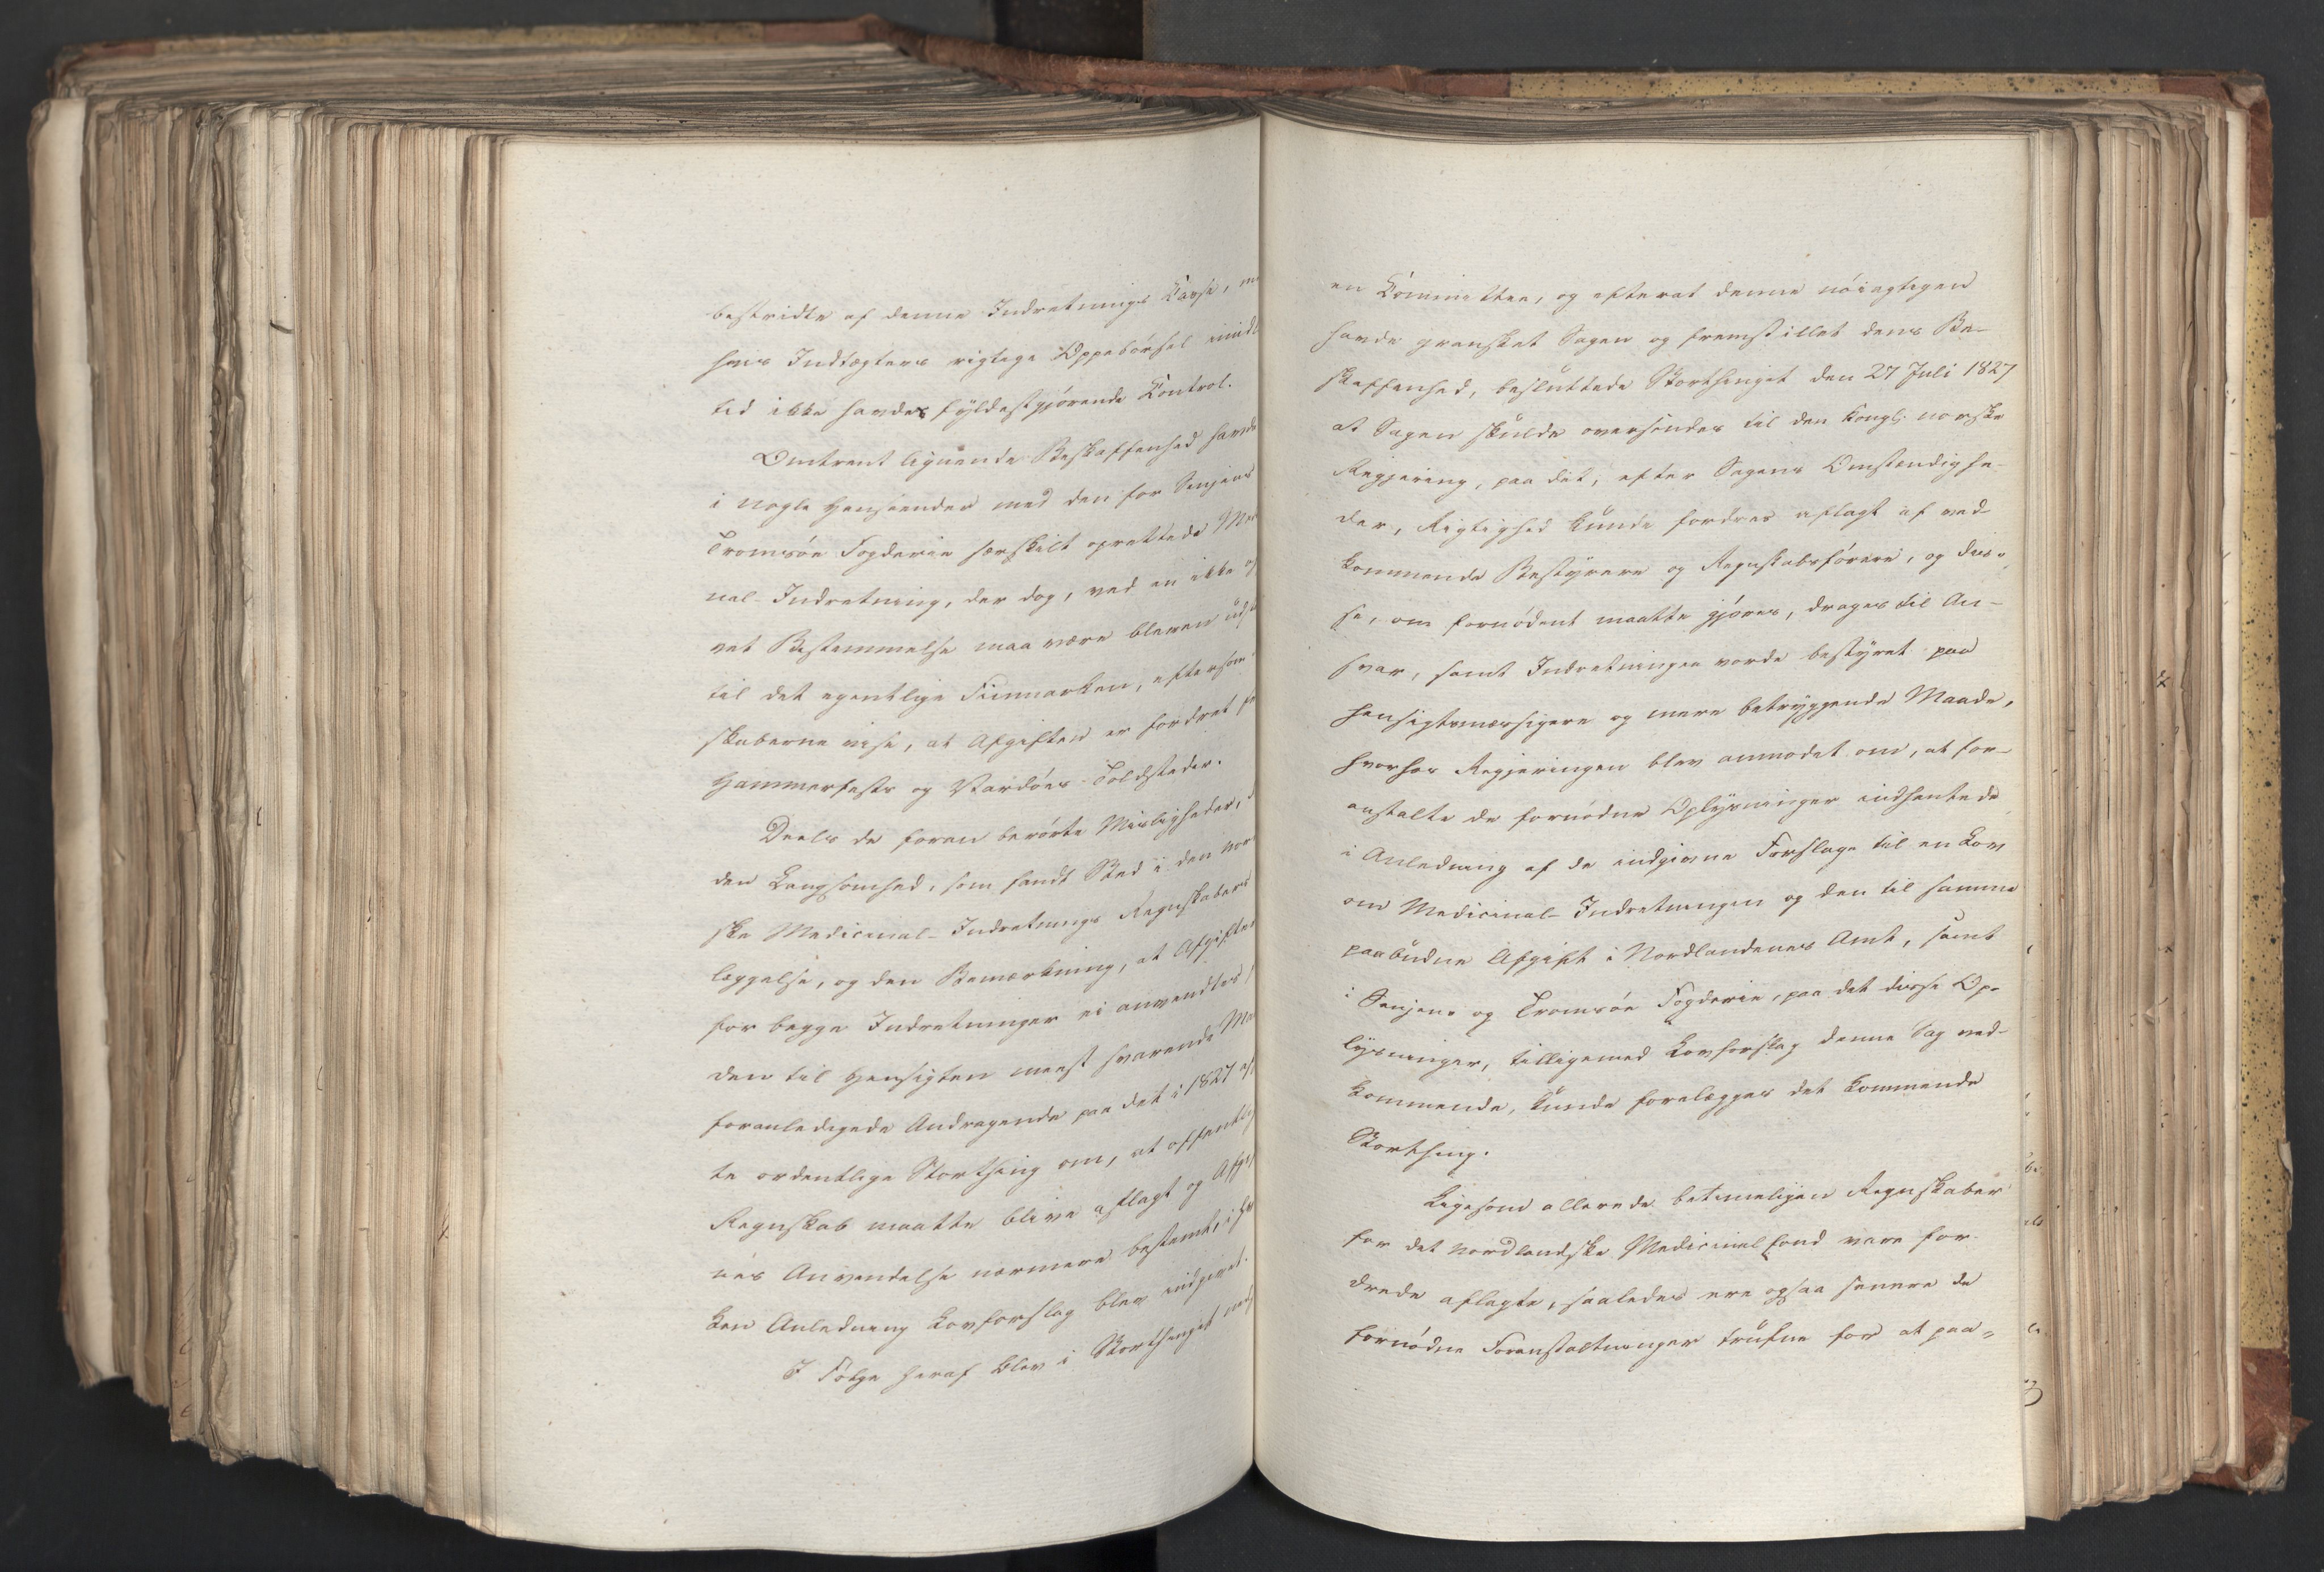 bestridte af denne Indretnings Casse, m
hvis Indtægters rigtige Oppebørsel imid
tid ikke havdes fyldestgjørende Control.
Omtrent lignende Beskaffenhed havde
i nogle Henseender med den for Senjens
Tromsøe Fogderie særskilt oprettede Me
nal-Indretning, der dog, ved en ikke op
vet Bestemmelse maa være bleven uds
til det egentlige Finmarken, eftersom
skaberne vise, at Afgiften er fordret fr
Hammerfests og Vardøes-Toldsteder.
Deels de foran berørte Misligheder,
den Langsomhed, som fandt Sted i den nor
ske Medicinal-Indretnings Regnskabers
læggelse, og den Bemærkning, at Afgiften
for begge Indretninger ei anvendtes
den til Hensigten meest svarende Ma
foranledigede Andragende paa det i 1827 af
te ordentlige Storthing om, at offentlig
Regnskab maatte blive aflagt og Afgif
nes Anvendelse nærmere bestemt, i hv
ken Anledning Lovforslag blev indgivet.
I Følge heraf blev i Storthinget ned
en Committee, og efterat denne nøiagtigen
havde gransket Sagen og fremstillet dens Be-
skaffenhed, besluttede Storthinget den 27 Juli 1827
at Sagen skulde oversendes til den Kongl. norske
Regjering, paa det, efter Sagens Omstændighe-
der, Rigtighed kunde fordres aflagt af ved-
kommende Bestyrere og Regnskabsførere, og dis-
se, om fornødent maatte gjøres, drages til An-
svar, samt Indretningen vorde bestyret paa
hensigtsmæssigere og mere betryggende Maade,
hvorhos Regjeringen blev anmodet om, at for-
anstalte de fornødne Oplysninger indhentede
i Anledning af de indgivne Forslage til en Lov
om Medicinal-Indretningen og den til samme
paabudne Afgift i Nordlandenes Amt, samt
i Senjens og Tromsøe Fogderie, paa det disse Op-
lysninger, tilligemed Lovforslag denne Sag ved-
kommende, kunde forelægges det kommende
Storthing.
Ligesom allerede betimeligen Regnskaber
for det nordlandske Medicinalfond vare for-
drede aflagte, saaledes ere ogsaa senere de
fornødne Foranstaltninger trufne for at paa-